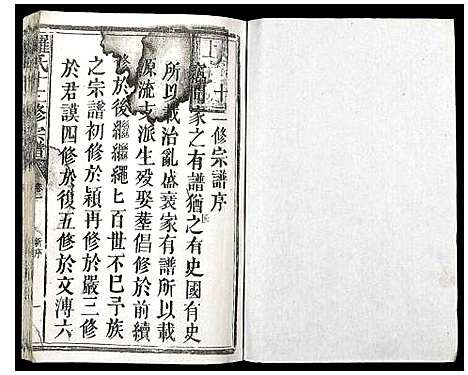 十二修宗譜序
家之有譜猶之有史國有史
所以載治亂盛衰家有譜所以載
源流支派生殁娶葬倡修於前續
修於後繼繼繩〻百世不已予族
之宗譜初修於穎再修於嚴三修
於君謨四修於後五修於文溥六
羅氏十二修宗譜
卷一
新序
一